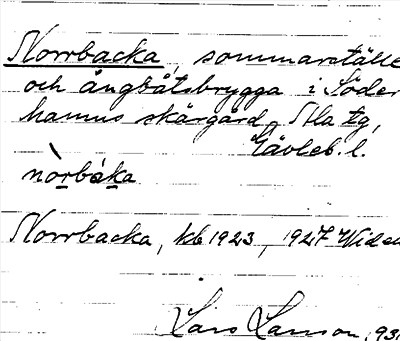 Norrbacka, sommarställe
och ångbåtsbrygga i Söder
hamns skärgård, Ala tg,
Gävleb. l.
nòrbáka
Norrbacka, kb 1923, 1927 Widen
Lars Larson, 93